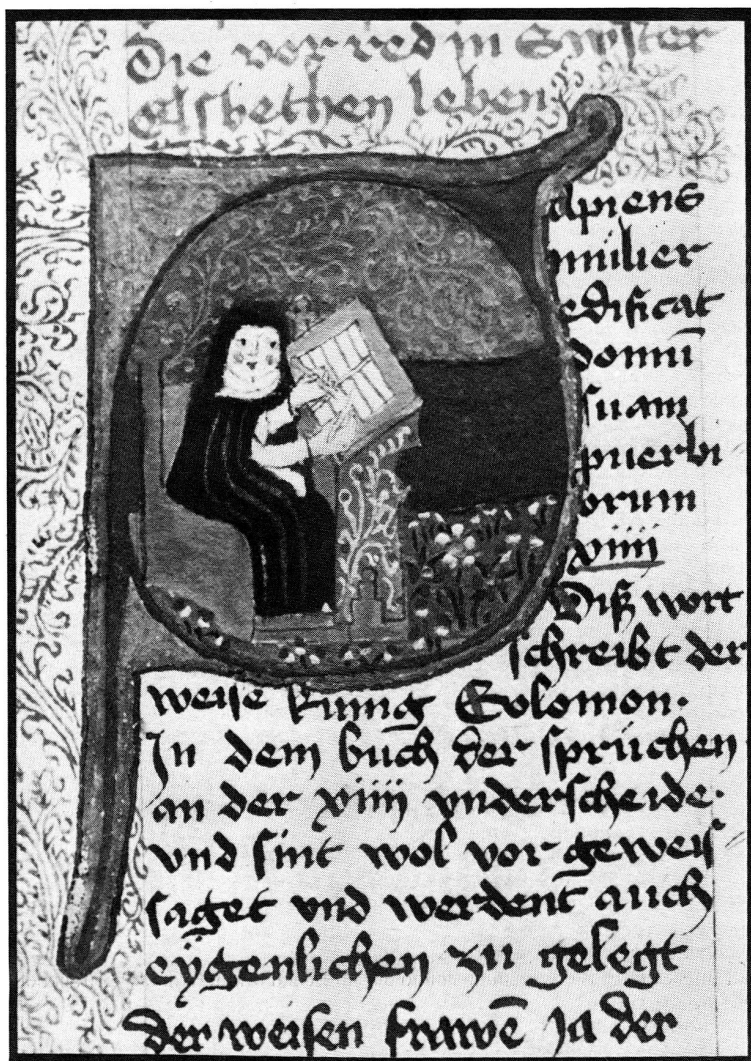 Die vor red in Swӧster
Elsbethen leben
Sapiens
mulier
edificat
domū
suam
puerbi
orum
xiiii
Diß wort
schreibt der
weise kunig Salomon.
In dem buch der sprüchen
an der xiiii vnderscheide.
vnd sint wol vor geweis
saget vnd werdent auch
eÿgenlichen zu gelegt
der weisen frawē Ja der